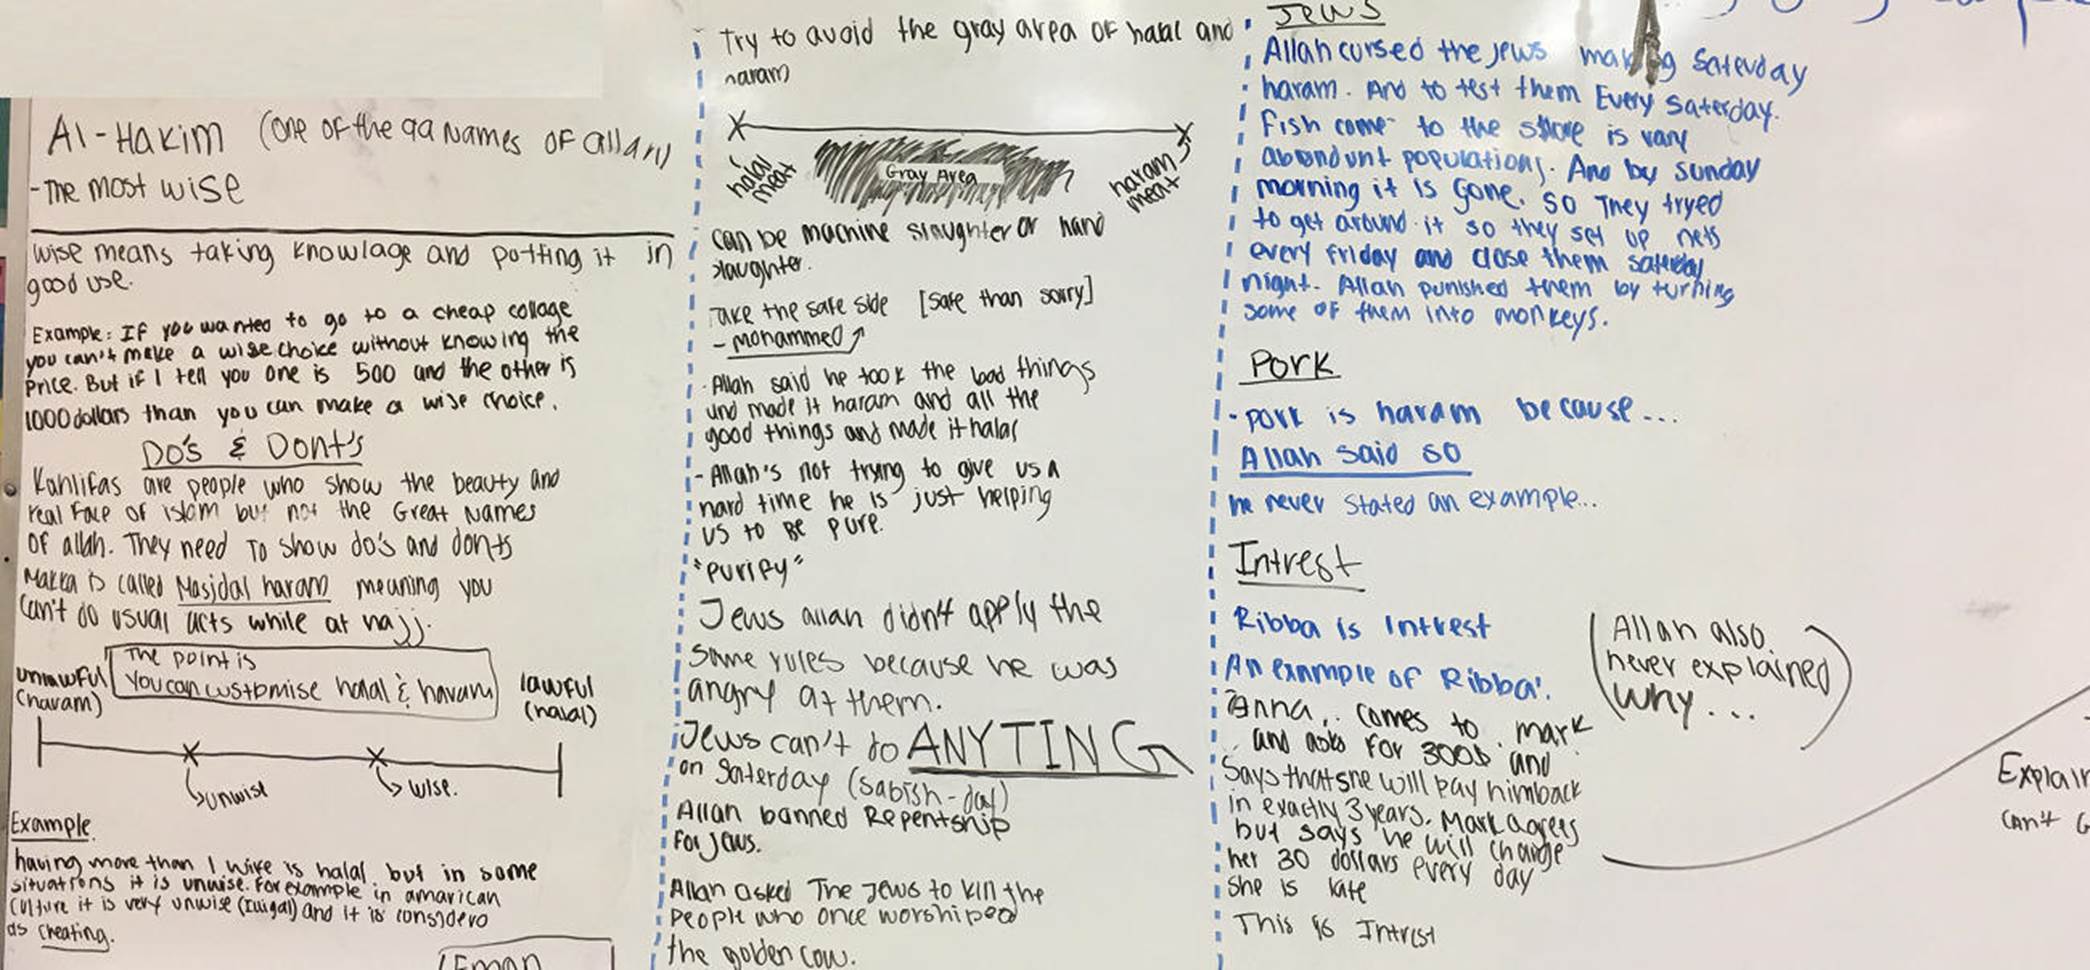 Al-Hakim (one of the 99 Names of allah)
-The most wise
wise means taking knowlage and putting it in
good use.
Example: If you wanted to go to a cheap collage
you can't make a wise choice without knowing the
price. But if I tell you one is 500 and the other is
1000 dollars than you can make a wise choice.
Do's & Dont's
Kahlifas are people who show the beauty and
real Face of islam but not the Great Names
of allah. They need To show do's and donts
Makka is called Masjdal haram meaning you
can't do usual acts while at hajj.
The point is
You can custumise halal & haram
unlawful
(haram)
lawful
(halal)
unwise
wise.
Example
having more than 1 wife is halal but in some
situations it is unwise. For example in amarican
culture it is very unwise (illigal) and it is considerd
as cheating.
Eman
Try to avoid the gray area of halal and
haram
halal
meat
Gray Area
haram
meat
can be machine slaughter or hand
slaughter.
Take the safe side [safe than sorry]
- mohammed
- Allah said he took the bad things
and made it haram and all the
good things and made it halal
- Allah's not trying to give us a
hard time he is just helping
us to be pure.
"purify"
Jews allah didn't apply the
same rules because he was
angry at them.
Jews can't do ANYTING
on Saterday (Sabish-day)
Allah banned Repentship
for Jews.
Allah asked The Jews to kill the
people who once worshiped
the golden cow.
Jews
Allah cursed the jews making Saterday
haram. And to test them Every Saterday.
Fish come to the shore is vary
abondunt populations. And by sunday
morning it is gone. So They tryed
to get around it so they set up nets
every friday and close them saterday
night. Allah punished them by turning
some of them into monkeys.
Pork
- pork is haram because...
Allah said so
he never stated an example...
Intrest
Ribba is Intrest
An example of Ribba:
Anna.. comes to mark
and asks for 300$ and
says that she will pay him back
in exactly 3 years. Mark agrees
but says he will charge
her 30 dollars every day
she is late
This is Intrest
Allah also
never explained
why...
Explain
can't